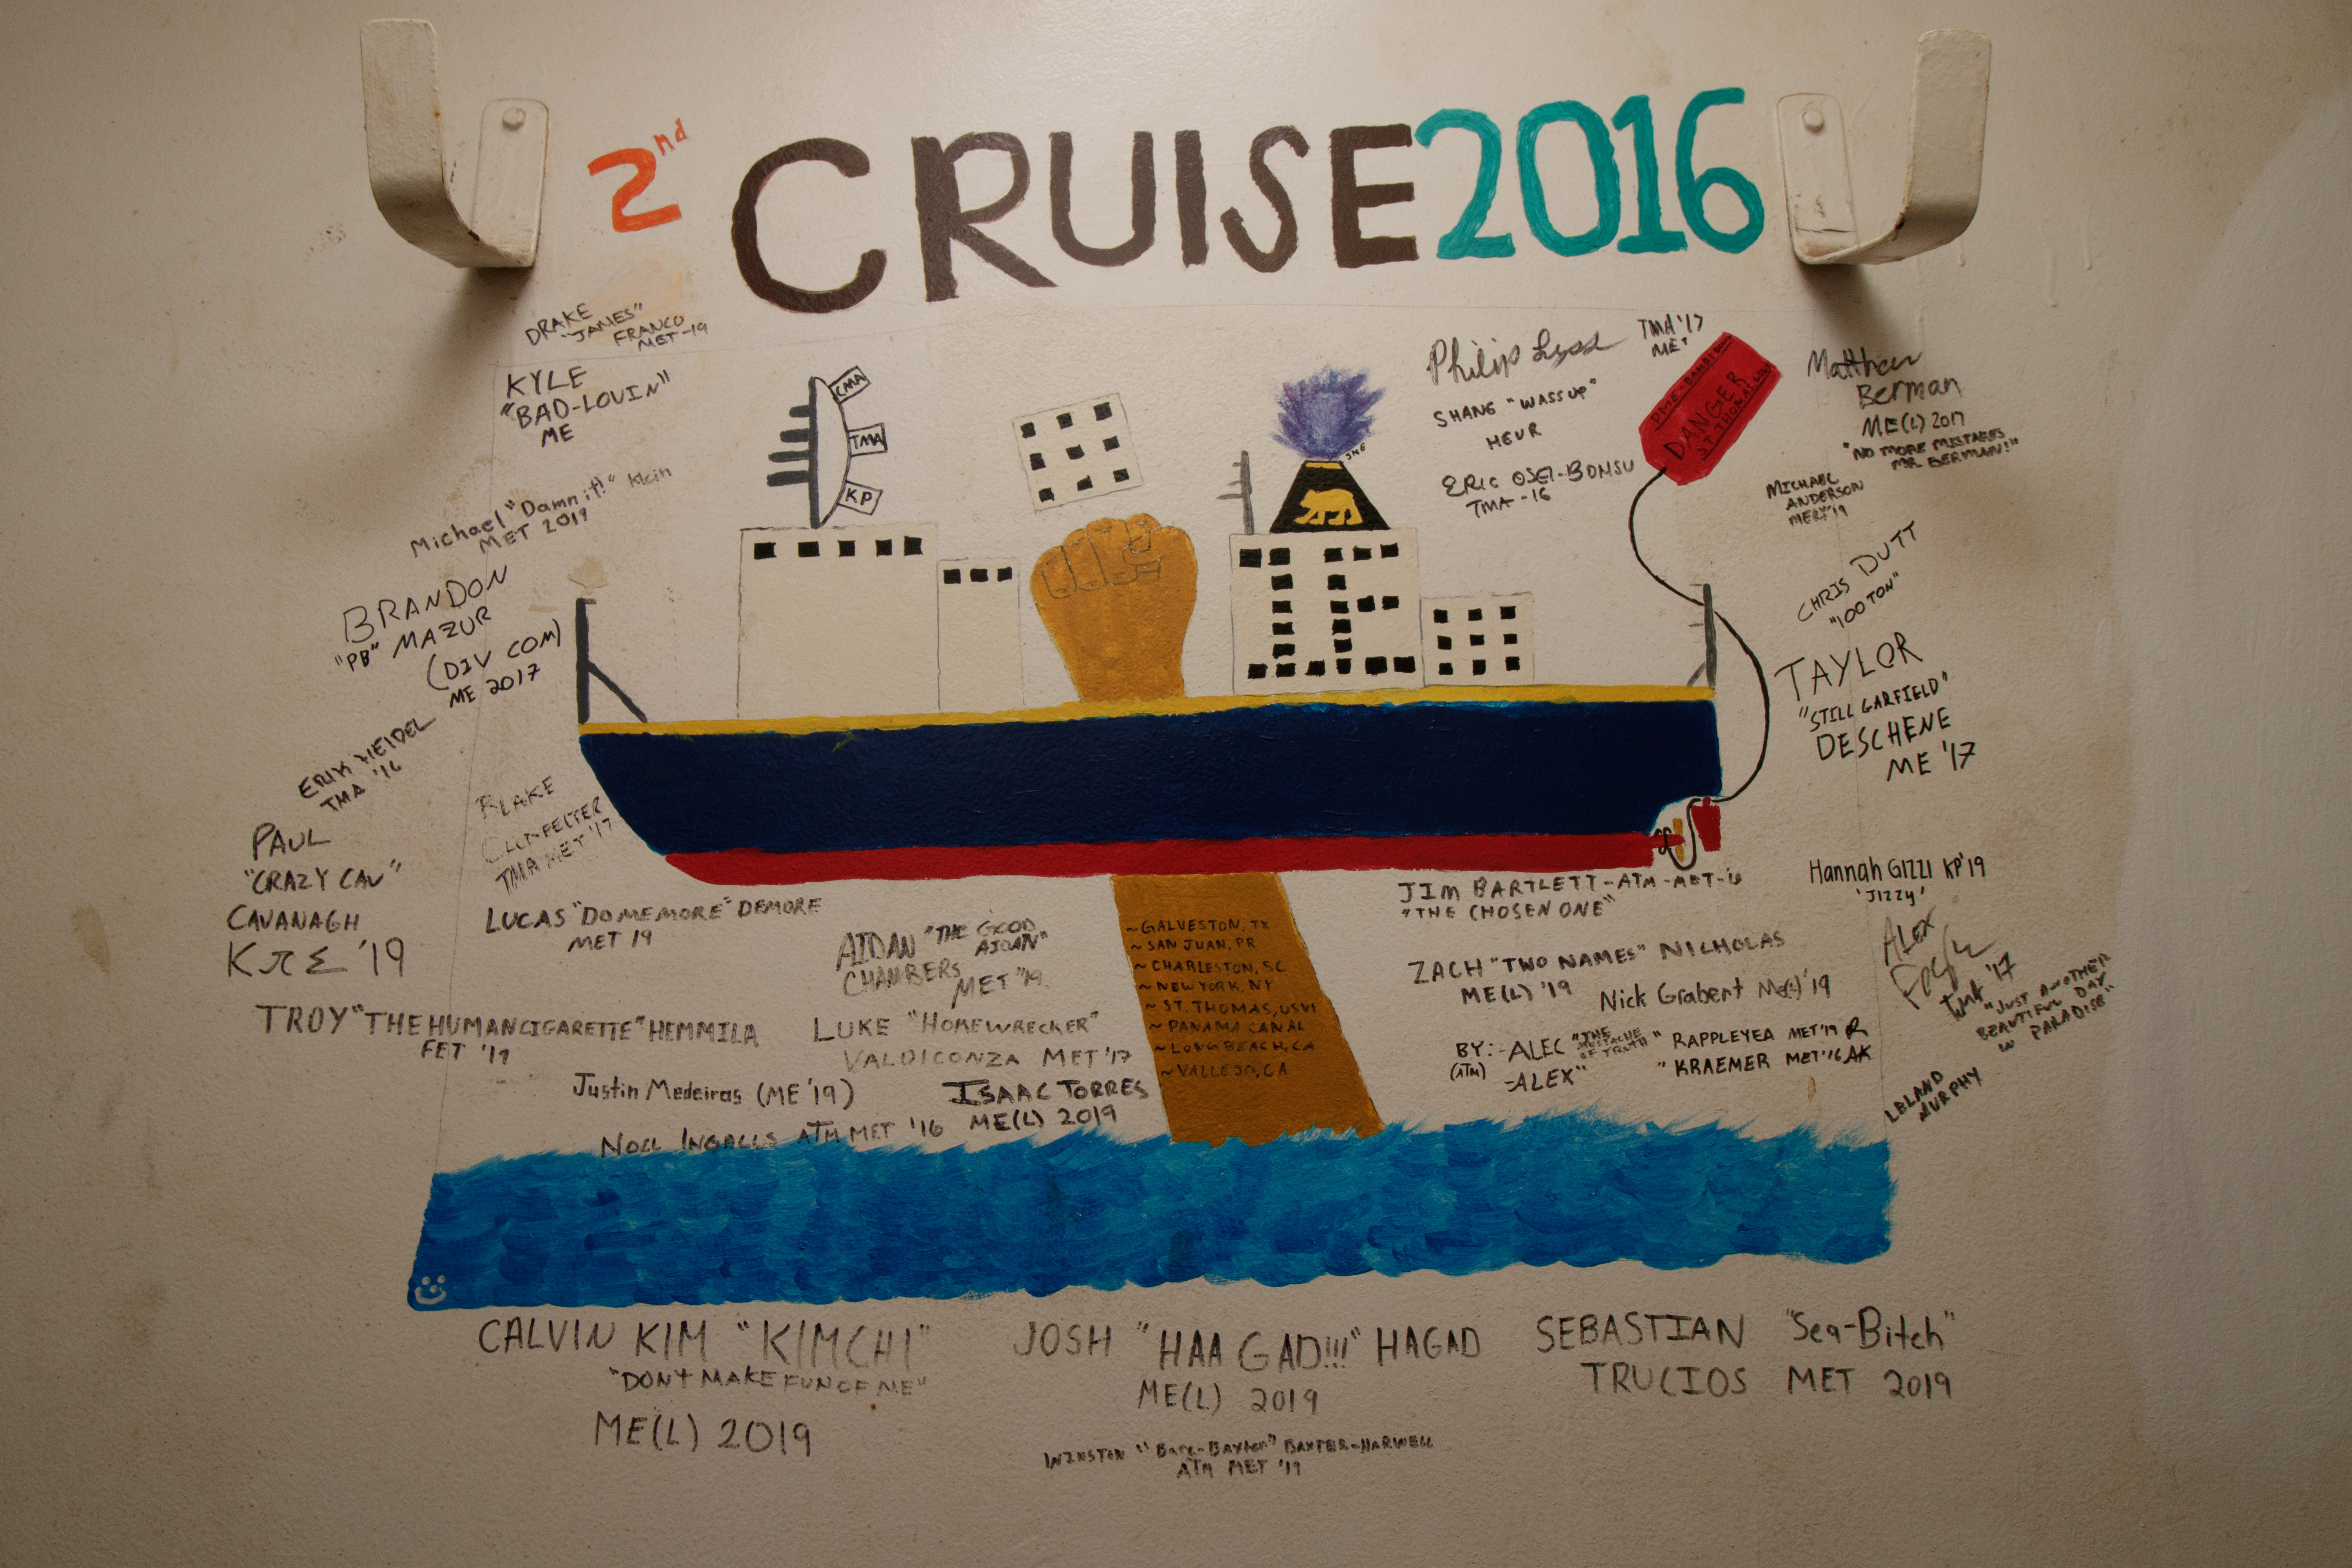 2nd CRUISE 2016
DRAKE
"JAMES"
FRANCO
MET-19
KYLE
"BAD-LOUIN"
ME
Michael "Damn it!" Klein
MET 2019
BRANDON
"PB" MAZUR
(DIV COM)
ME 2017
ERIK
TMA '16
PAUL
"CRAZY CAV"
CAVANAGH
KπΣ '19
BLAKE
TMA MET '17
LUCAS "DOMEMORE" DEMORE
MET 19
TROY "THE HUMAN CIGARETTE" HEMMILA
FET '19
AIDAN "THE GOOD
AIDAN"
CHAMBERS
MET '19
LUKE "HOMEWRECKER"
VALDICONZA MET '17
Justin Medeiros (ME '19)
ISAAC TORRES
ME(L) 2019
NOLL INGALLS ATM MET '16
CMA
TMA
KP
Philip
TMA '17
MET
SHANG "WASSUP"
HEUR
ERIC OSEI-BONSU
TMA-16
DANGER
ST THOMAS
Matthew
Berman
ME(L) 2017
"NO MORE MISTAKES
MR BERMAN!"
MICHAEL
ANDERSON
CHRIS DUTT
"100 TON"
TAYLOR
"STILL GARFIELD"
DESCHENE
ME '17
~GALVESTON, TX
~SAN JUAN, PR
~CHARLESTON, SC
~NEW YORK, NY
~ST. THOMAS, USVI
~PANAMA CANAL
~LONG BEACH, CA
~VALLEJO, CA
JIM BARTLETT-ATM-MET-16
"THE CHOSEN ONE"
ZACH "TWO NAMES" NICHOLAS
ME(L) '19
Nick Grabert Me(L) '19
BY: -ALEC "THE MUSTACHE OF TRUTH" RAPPLEYEA MET '19 R
(ATM) -ALEX " " KRAEMER MET '16 AK
Hannah GIZZI KP '19
'JIZZY'
ALEX
'17
"JUST ANOTHER
BEAUTIFUL DAY
IN PARADISE"
LELAND
MURPHY
CALVIN KIM "KIMCHI"
"DON'T MAKE FUN OF ME"
ME(L) 2019
JOSH "HAA GAD!!!" HAGAD
ME(L) 2019
SEBASTIAN "Sea-Bitch"
TRUCIOS MET 2019
WINSTON "Bare-Baxter" BAXTER-HARWELL
ATM MET '19